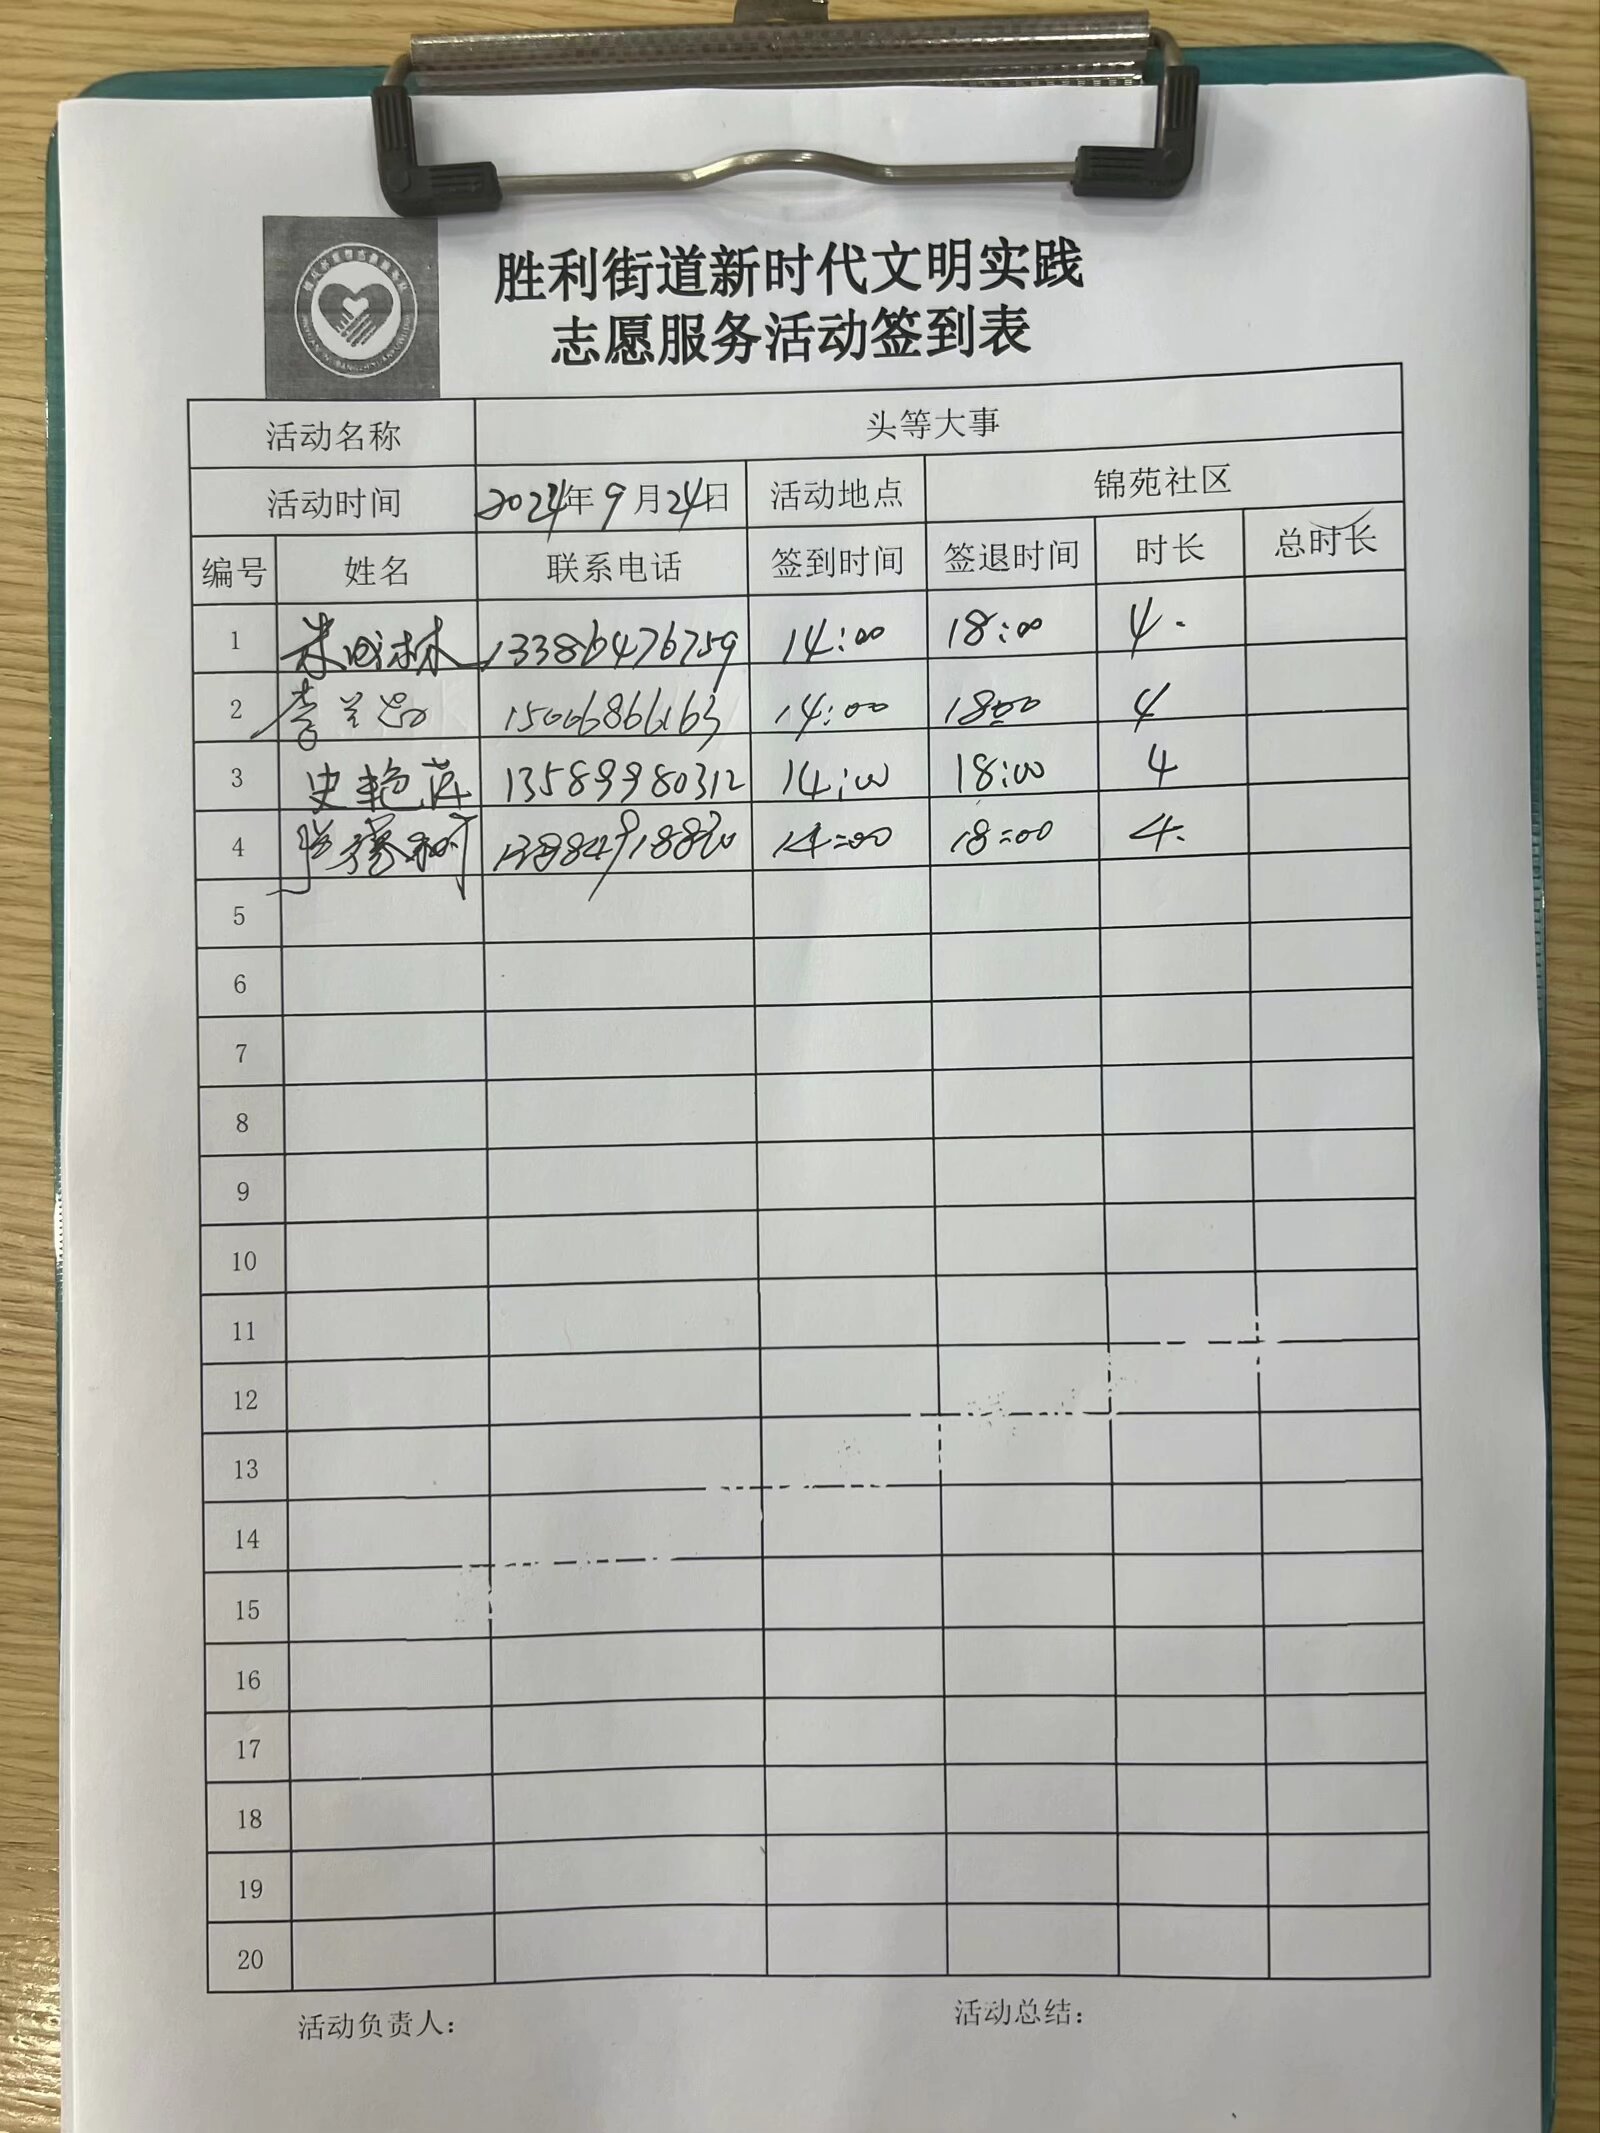 胜利街道新时代文明实践
志愿服务活动签到表
活动名称 头等大事
活动时间 2024年9月24日 活动地点 锦苑社区
编号 姓名 联系电话 签到时间 签退时间 时长 总时长
1 13386476759 14:00 18:00 4.
2 李兰 15006866163 14:00 18:00 4
3 史艳萍 13589980312 14:00 18:00 4
4 14:00 18:00 4.
5
6
7
8
9
10
11
12
13
14
15
16
17
18
19
20
活动负责人： 活动总结：